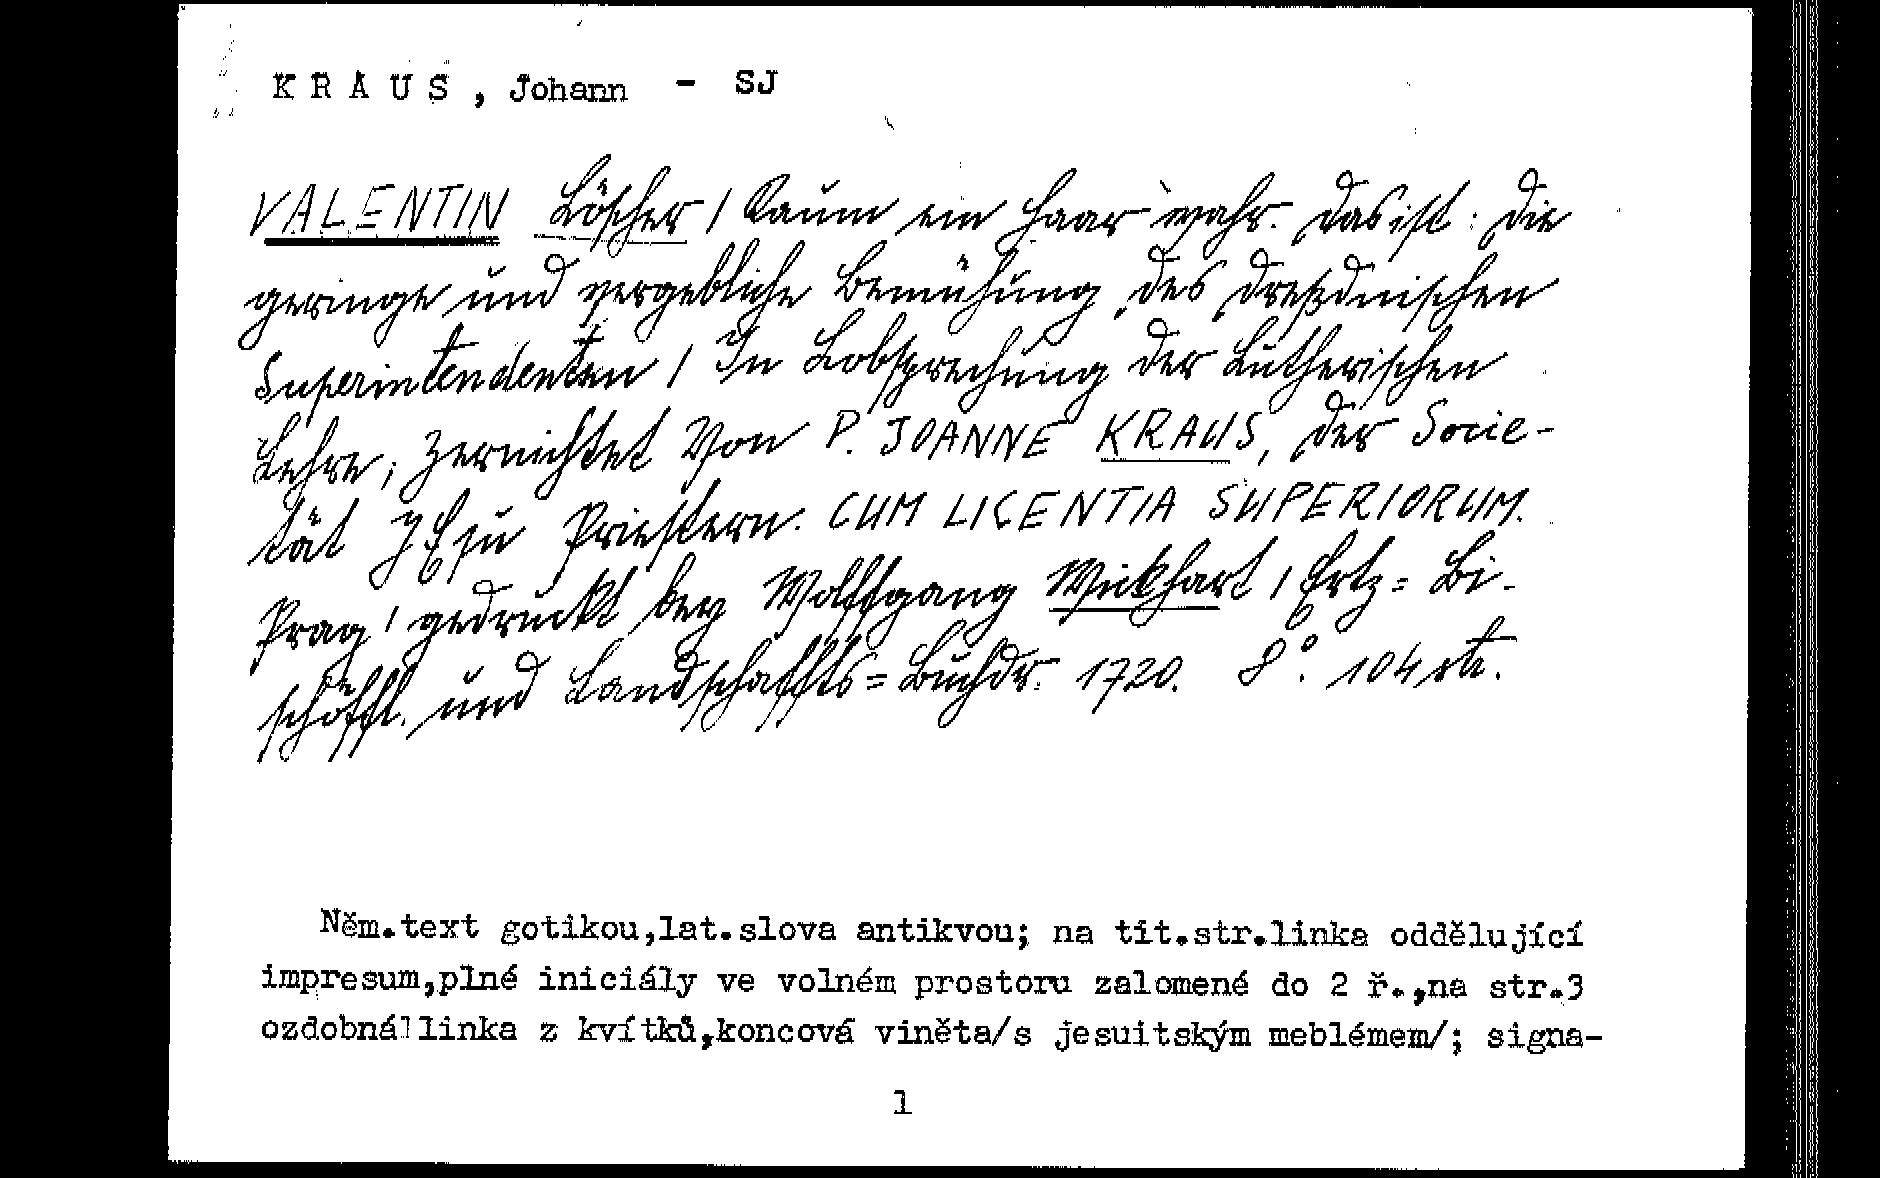 K R A U S , Johann - SJ
VALENTIN Löscher / Kaum ein Haar wahr. Das ist: Die
geringe und vergebliche Bemühung des Dreßdnischen
Superintendenten / In Lobsprechung der Lutherischen
Lehre, Zernichtet Von P. JOANNE KRAUS, der Socie-
tät JEsu Priestern. CUM LICENTIA SUPERIORUM.
Prag / gedruckt bey Wolffgang Wickhart / Ertz= Bi-
schöffl. und Landschaffts=Buchdr. 1720. 8°. 104 str.
Něm.text gotikou,lat.slova antikvou; na tit.str.linka oddělující
impresum,plné iniciály ve volném prostoru zalomené do 2 ř.,na str.3
ozdobná linka z kvítků,koncová viněta/s jesuitským meblémem/; signa-
1